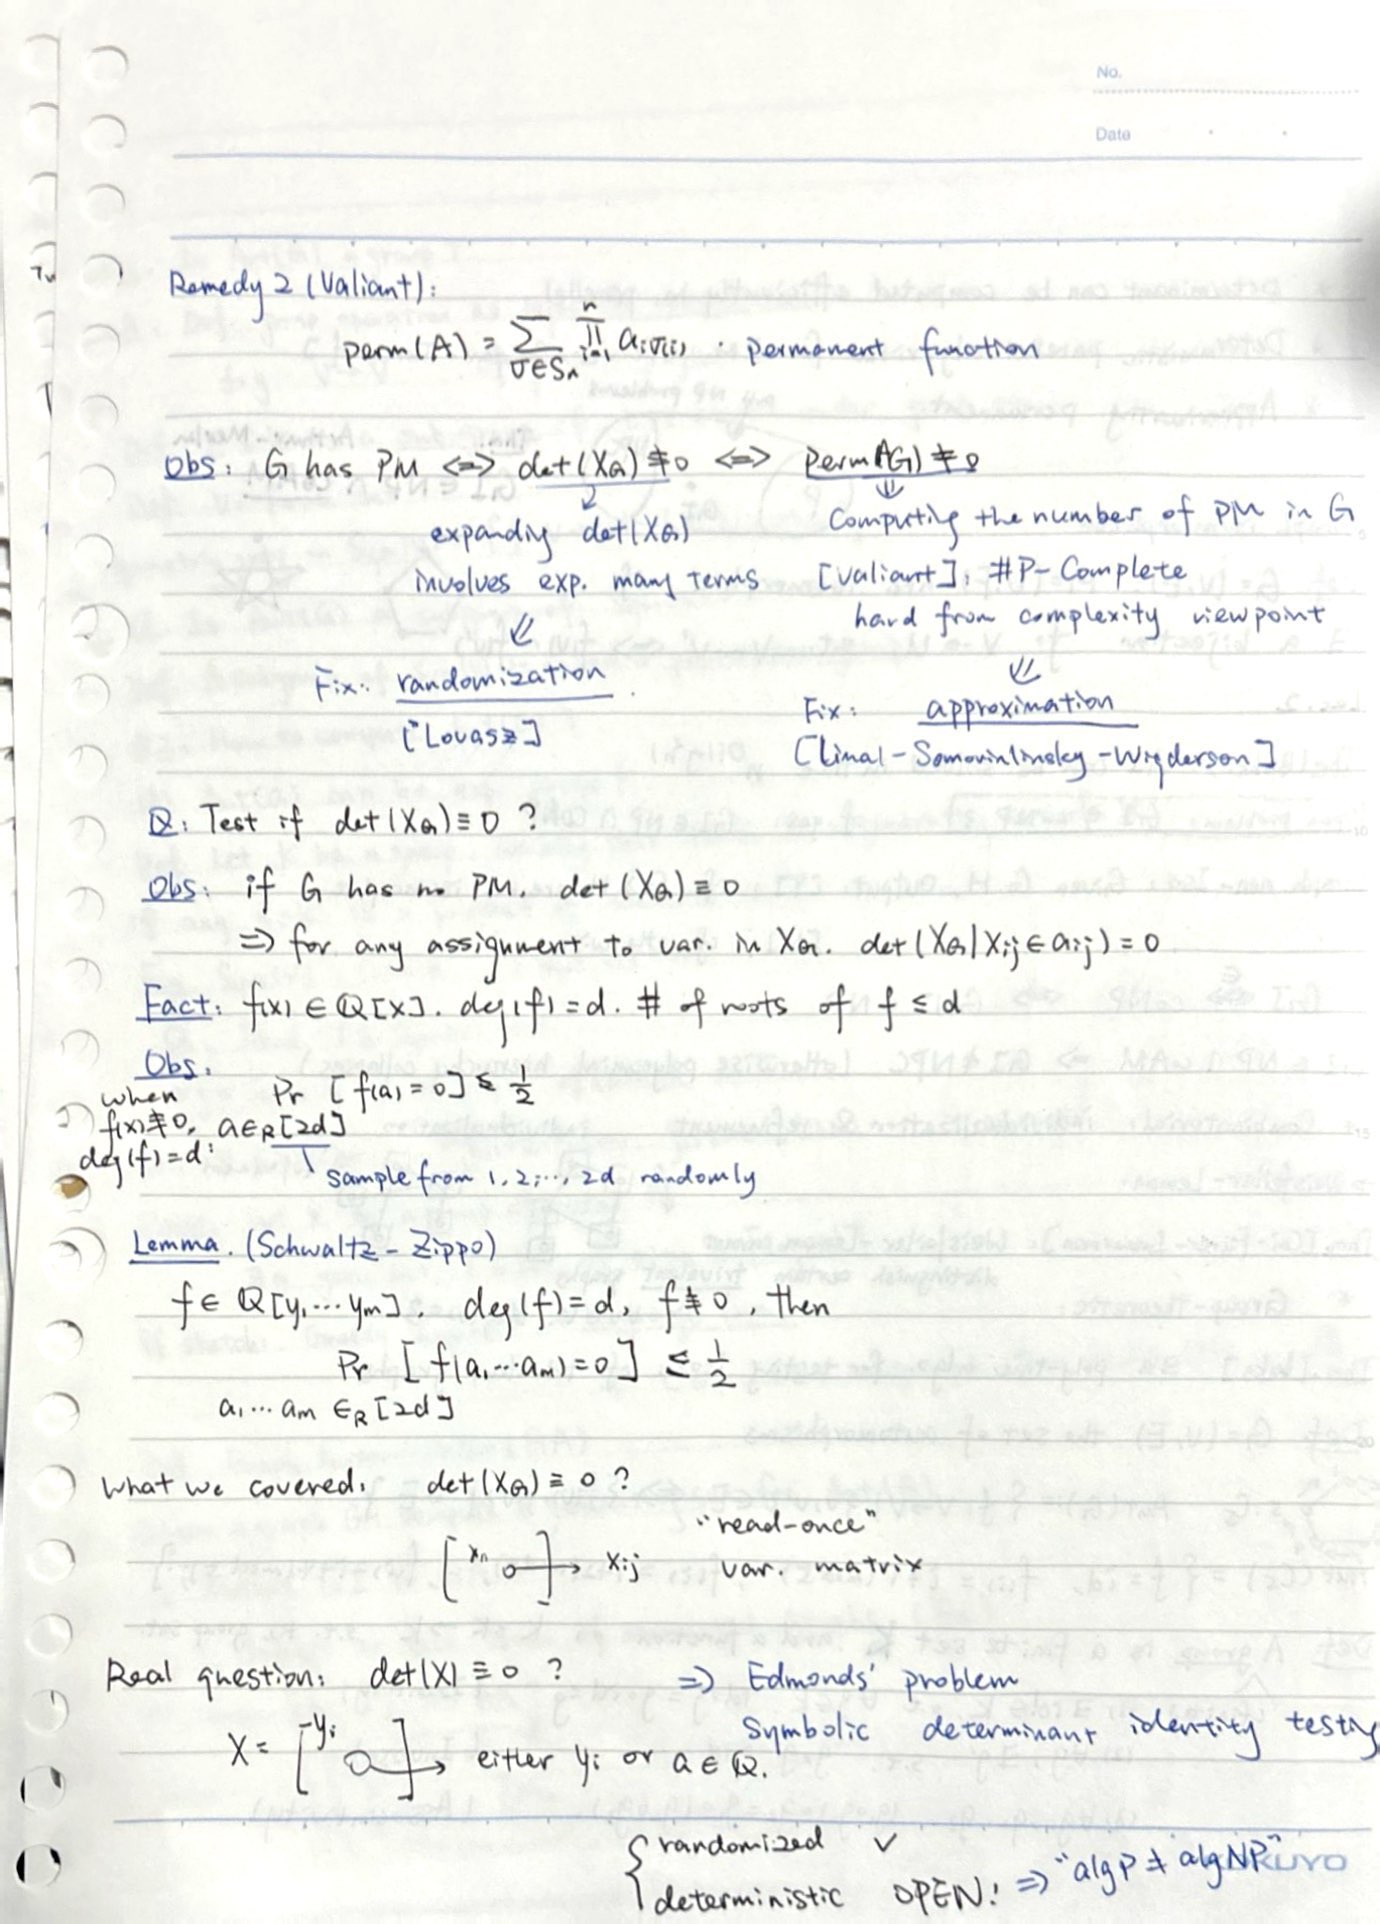 No.
Date
Remedy 2 (Valiant):
perm(A) = ∑_{σ∈Sₙ} ∏_{i=1}^{n} a_{iσ(i)} . permanent function
Obs: G has PM ⟺ det(X_G) ≢ 0 ⟺ perm(A_G) ≠ 0
expandig det(X_G)
involves exp. many terms
⇓
Fix: randomization
[Lovasz]
⇓
Computing the number of PM in G
[Valiant]: #P-Complete
hard from complexity viewpoint
⇓
Fix: approximation
[Linal-Somorinlinsky-Wigderson]
Q: Test if det(X_G) ≡ 0 ?
Obs: if G has no PM. det(X_G) ≡ 0
⇒ for any assignment to var. in X_G. det(X_G | x_{ij} ∈ a_{ij}) = 0
Fact: f(x) ∈ ℚ[x]. deg(f) = d. # of roots of f ≤ d
Obs.
when f(x) ≢ 0, deg(f) = d:
Pr_{a ∈_R [2d]} [f(a) = 0] ≤ 1/2
sample from 1, 2, ..., 2d randomly
Lemma. (Schwaltz - Zippo)
f ∈ ℚ[y₁ ... y_m]. deg(f) = d, f ≢ 0, then
Pr [f(a₁ ... a_m) = 0] ≤ 1/2
a₁ ... a_m ∈_R [2d]
What we covered: det(X_G) ≡ 0 ?
"read-once"
→ x_{ij} var. matrix
Real question: det(X) ≡ 0 ? ⇒ Edmonds' problem
Symbolic determinant identity testing
X = [ y_i ] → either y_i or a ∈ ℚ.
{ randomized ✓
deterministic OPEN! ⇒ "alg P ≠ alg NP"
KUYO